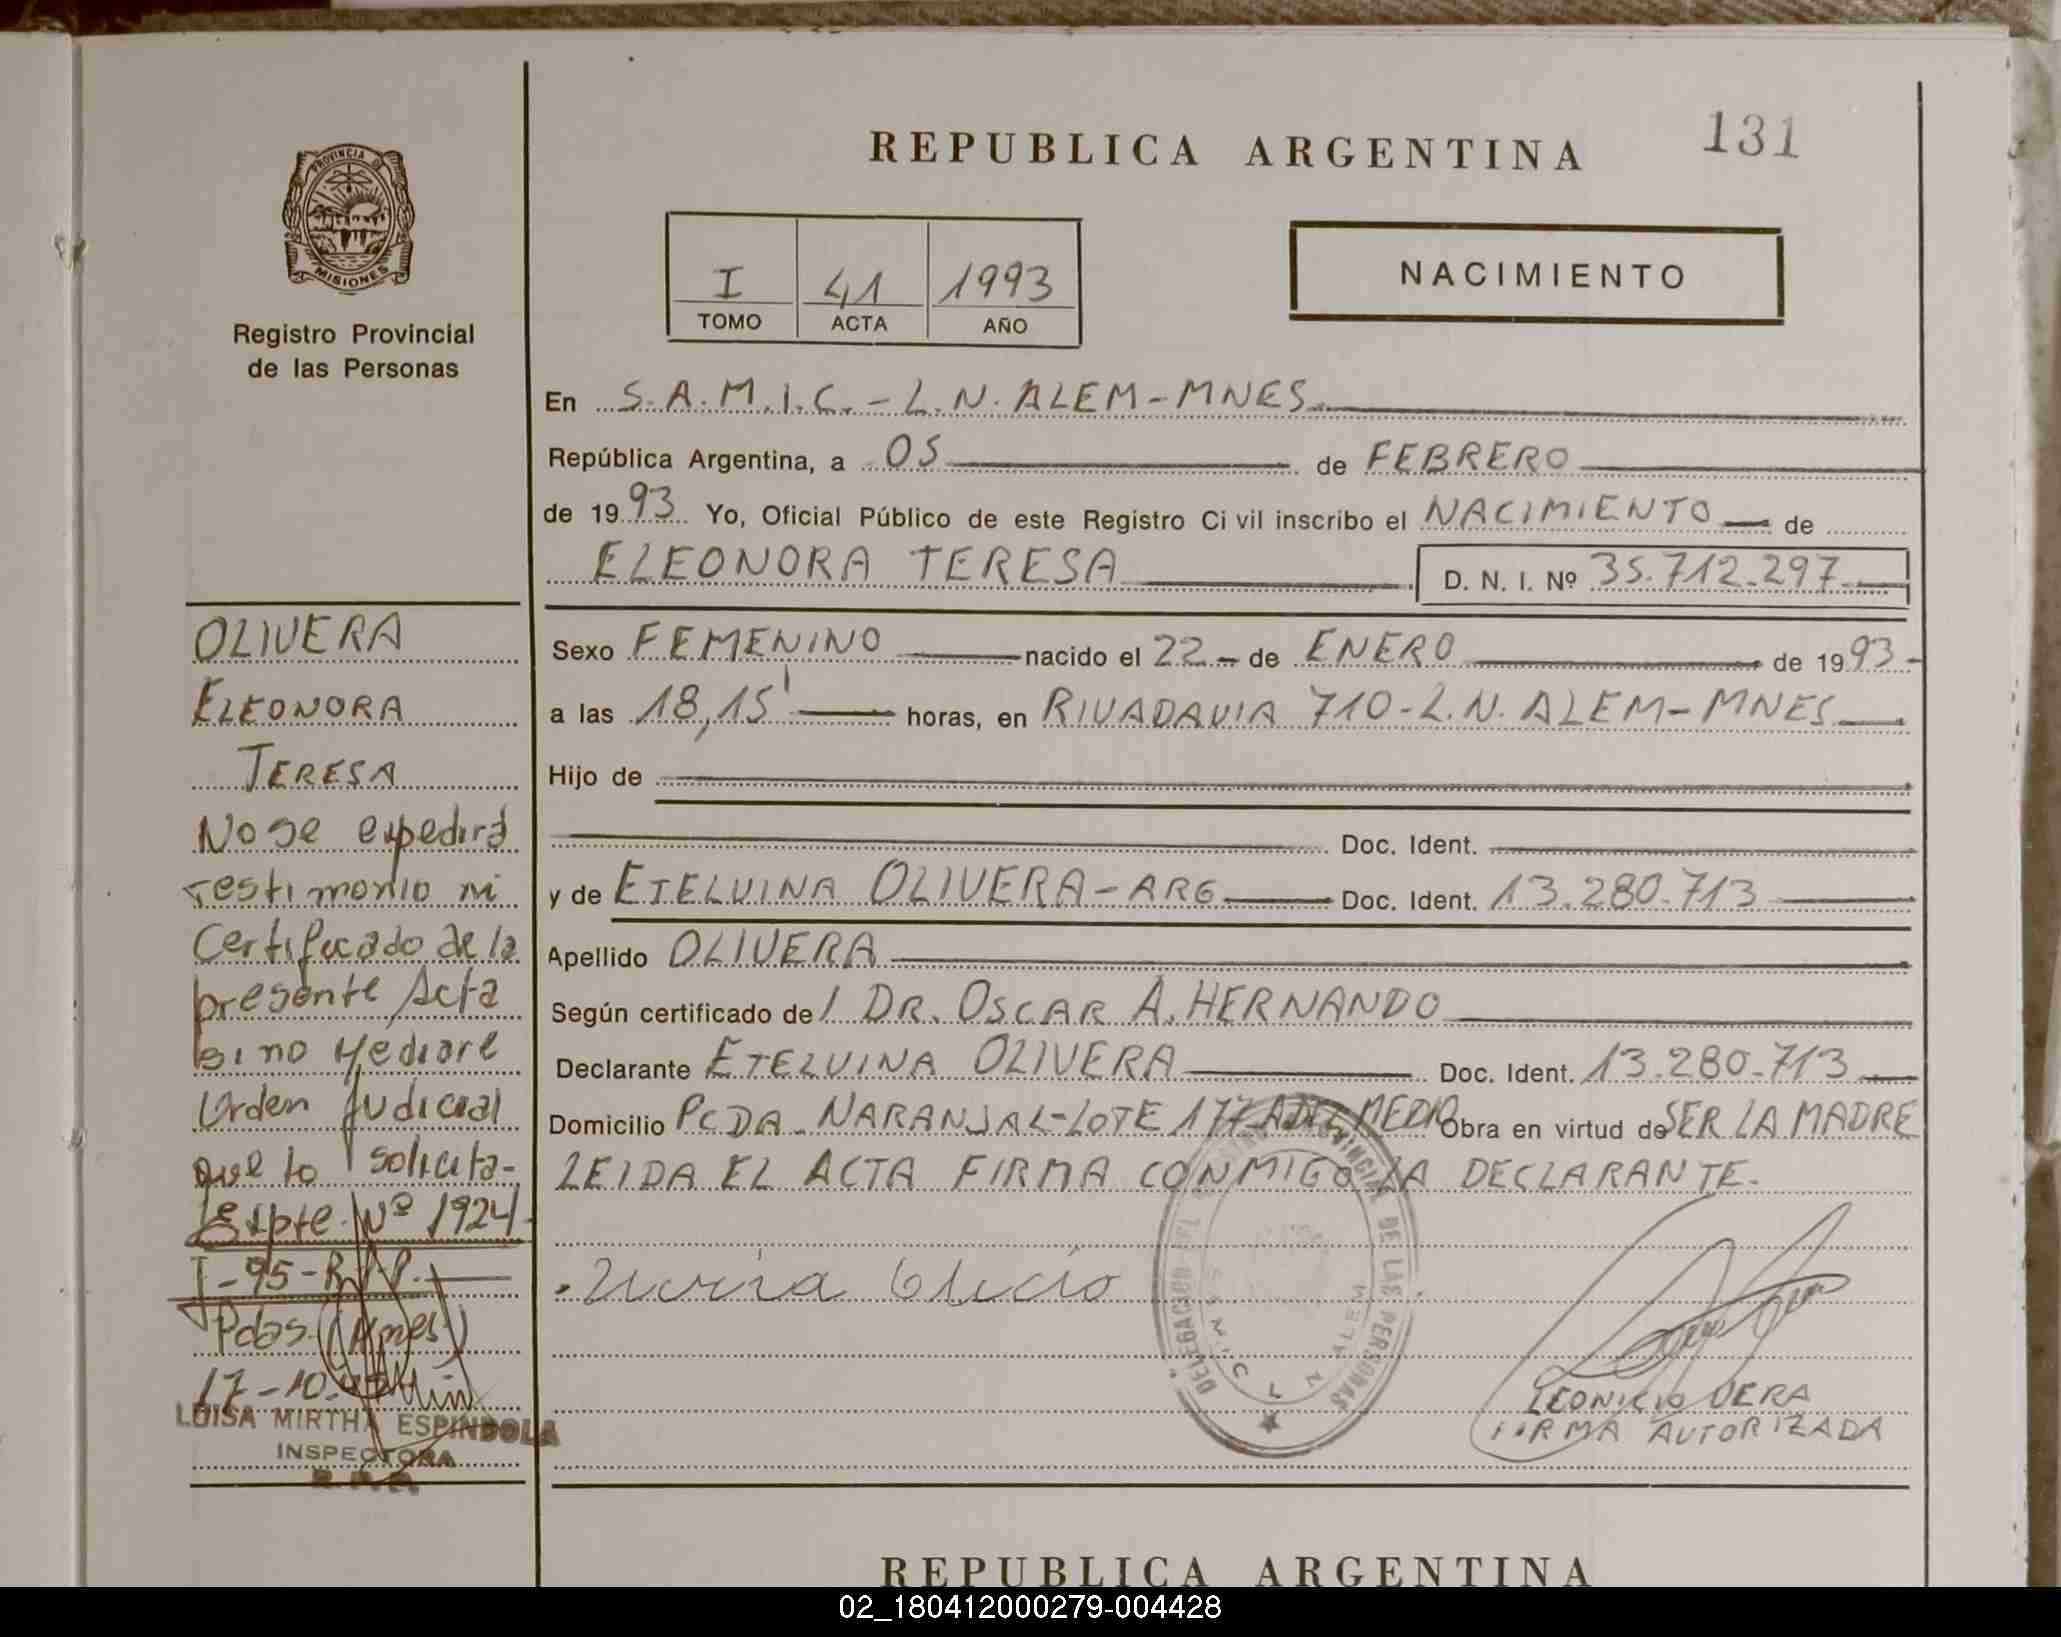 REPUBLICA ARGENTINA
131
PROVINCIA DE
MISIONES
Registro Provincial
de las Personas
I 41 1993
TOMO ACTA AÑO
NACIMIENTO
En S.A.M.I.C. - L.N. ALEM - MNES.
República Argentina, a 05 de FEBRERO
de 1993 Yo, Oficial Público de este Registro Civil inscribo el NACIMIENTO de
ELEONORA TERESA D. N. I. Nº 35.712.297
Sexo FEMENINO nacido el 22 de ENERO de 1993
a las 18,15' horas, en RIVADAVIA 710 - L.N. ALEM - MNES
Hijo de
Doc. Ident.
y de ETELVINA OLIVERA - ARG Doc. Ident. 13.280.713
Apellido OLIVERA
Según certificado de l DR. OSCAR A. HERNANDO
Declarante ETELVINA OLIVERA Doc. Ident. 13.280.713
Domicilio PCDA. NARANJAL - LOTE 177 A DEL MEDIO Obra en virtud de SER LA MADRE
LEIDA EL ACTA FIRMA CONMIGO LA DECLARANTE.
LEONICIO VERA
FIRMA AUTORIZADA
DELEGACION DEL REGISTRO PROVINCIAL DE LAS PERSONAS
L N ALEM
OLIVERA
ELEONORA
TERESA
No se expedirá
testimonio ni
Certificado de la
presente Acta
si no mediare
Orden Judicial
que lo solicita-
Expte. Nº 1924-
I-95-R.P.P.
Pdas. (Mnes)
17-10-
LUISA MIRTHA ESPINDOLA
INSPECTORA
R.P.P.
REPUBLICA ARGENTINA
02_180412000279-004428